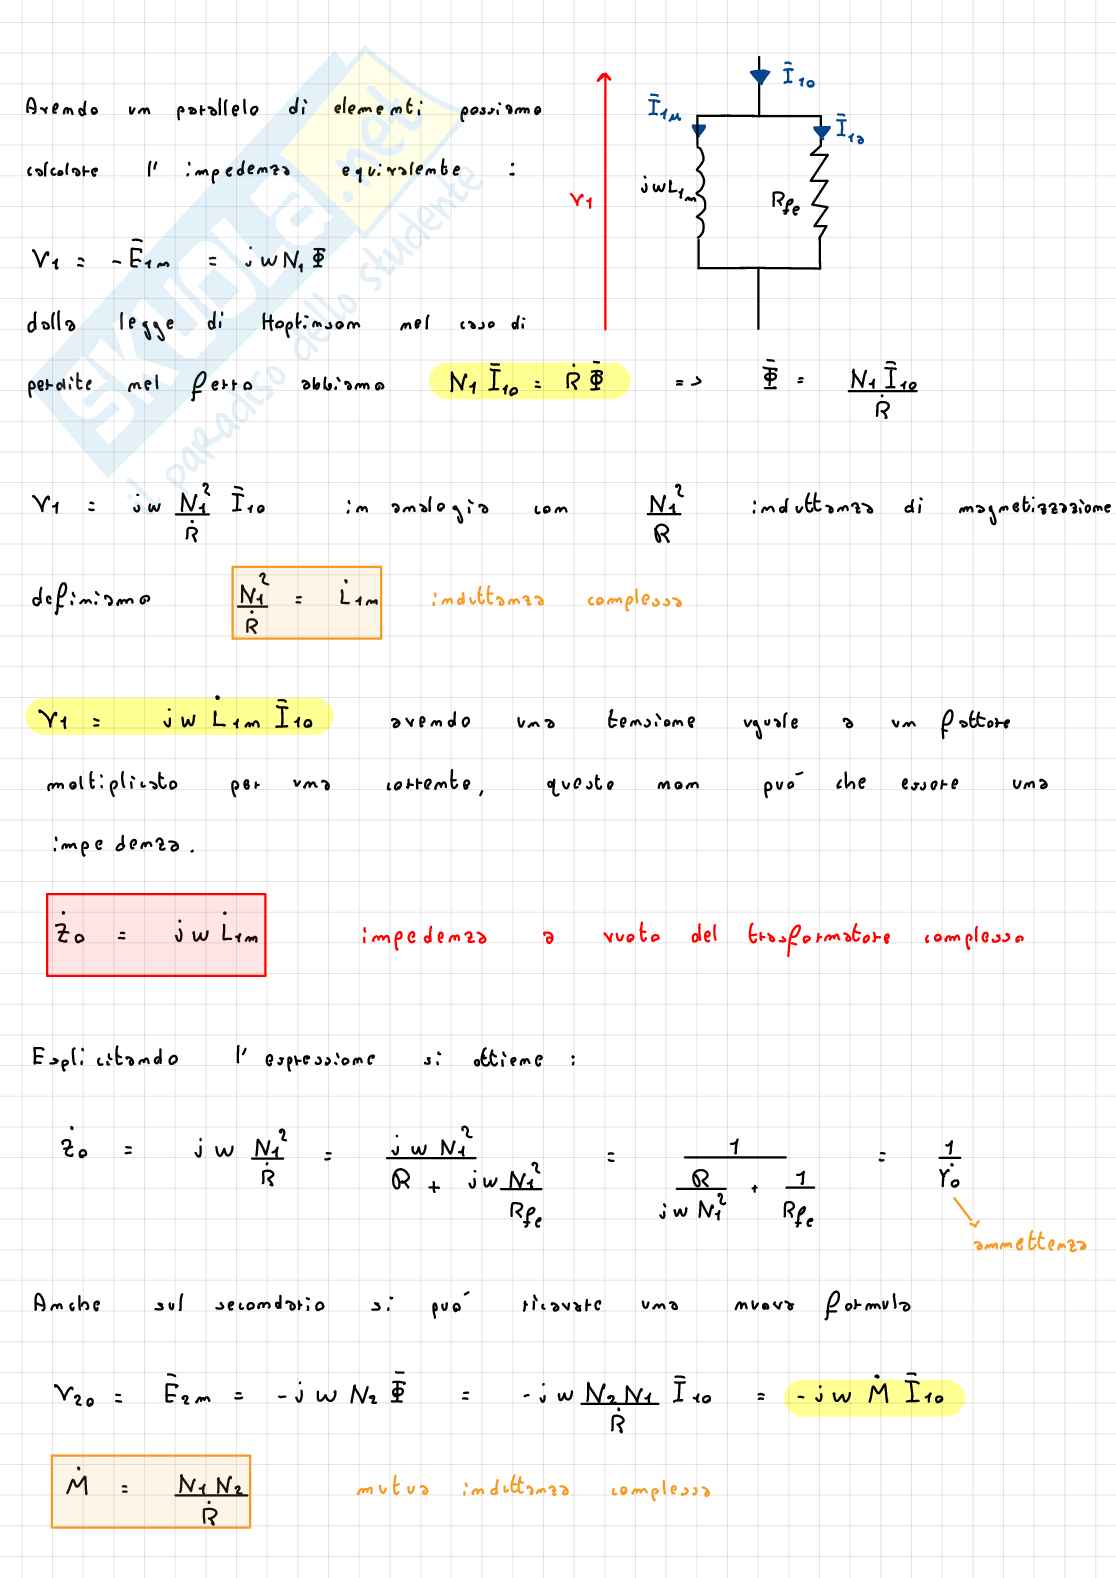 Avendo un parallelo di elementi possiamo
calcolare l' impedenza equivalente :
V1 = -Ē1m = jwN1 Φ̄
dalla legge di Hoptinson nel caso di
perdite nel ferro abbiamo N1 Ī10 = Ṙ Φ̄ => Φ̄ = N1 Ī10 / Ṙ
Ī10
Ī1μ
Ī1a
V1
jwL1m
Rfe
V1 = jw N1² / Ṙ Ī10 in analogia con N1² / R induttanza di magnetizzazione
definiamo N1² / Ṙ = L̇1m induttanza complessa
V1 = jw L̇1m Ī10 avendo una tensione uguale a un fattore
moltiplicato per una corrente, questo non può che essere una
impedenza.
Ż0 = jw L̇1m impedenza a vuoto del trasformatore complesso
Esplicitando l' espressione si ottiene :
Ż0 = jw N1² / Ṙ = jw N1² / (R + jw N1² / Rfe) = 1 / (R / jw N1² + 1 / Rfe) = 1 / Ẏ0
ammettenza
Anche sul secondario si può ricavare una nuova formula
V20 = Ē2m = -jw N2 Φ̄ = -jw N2 N1 / Ṙ Ī10 = -jw Ṁ Ī10
Ṁ = N1 N2 / Ṙ mutua induttanza complessa
SKUOLA.net
il paradiso dello studente